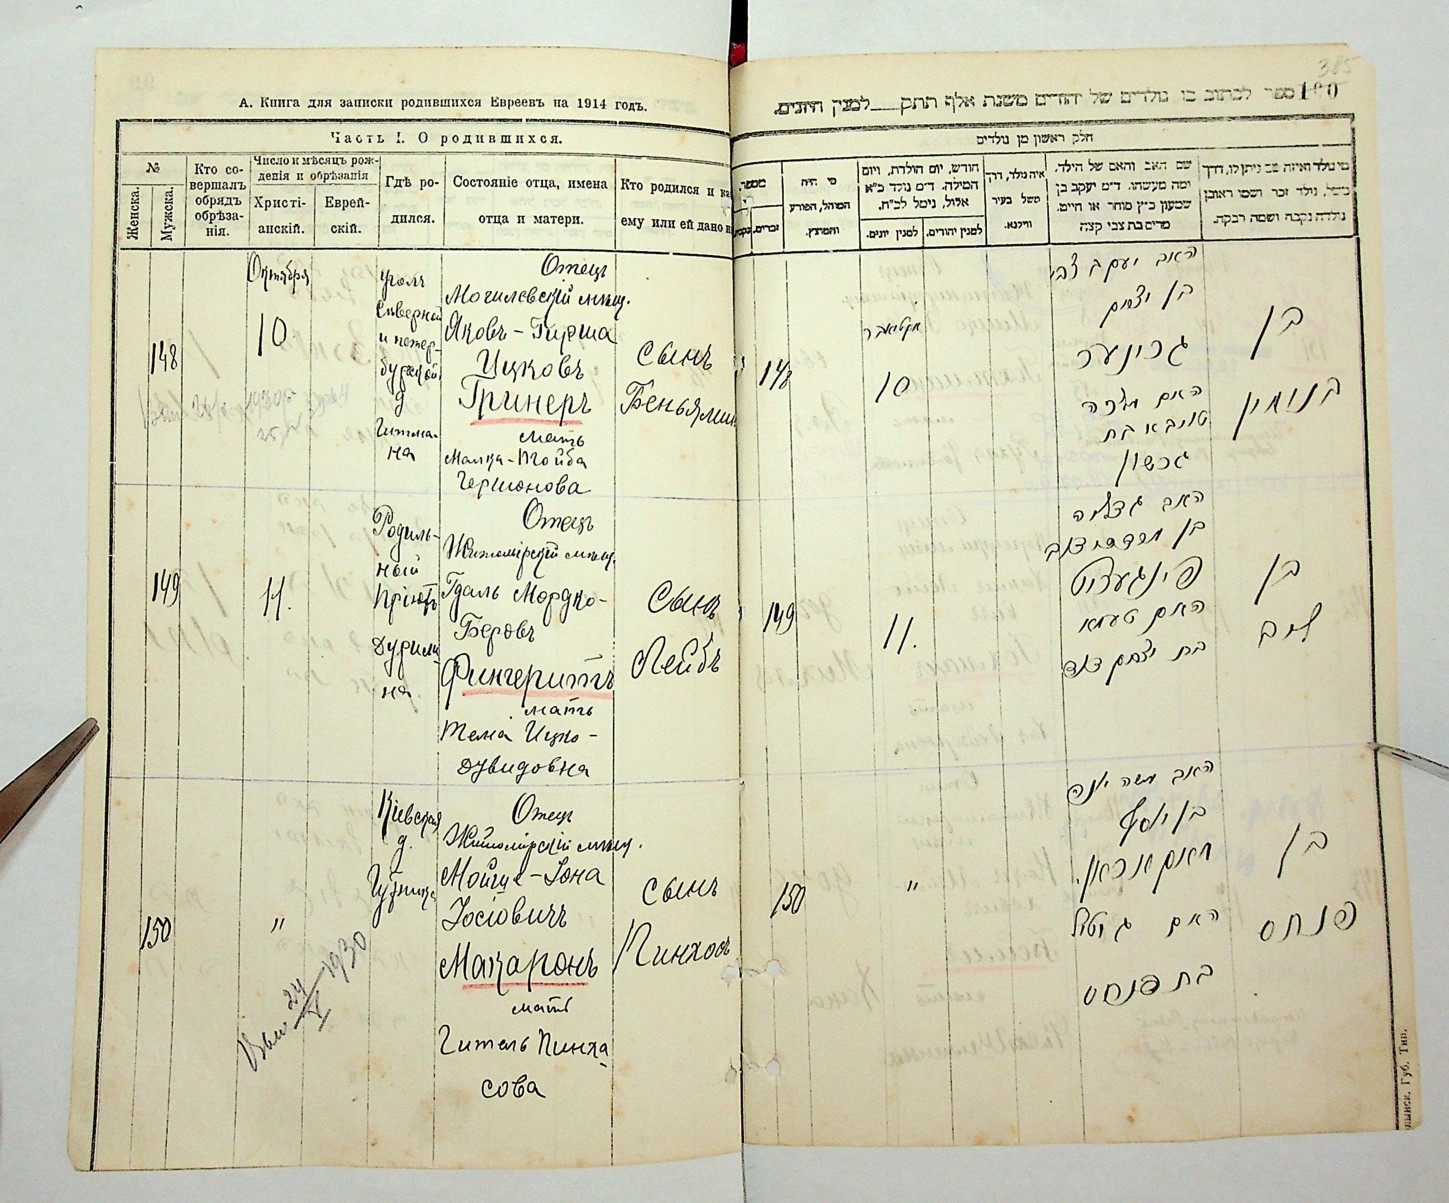 А. Книга для записки родившихся Евреевъ на 1914 годъ.
Часть I. О родившихся.
№
Женска.
Мужска.
Кто со-
вершалъ
обрядъ
обрѣза-
нія.
Число и мѣсяцъ рож-
денія и обрѣзанія
Христі-
анскій.
Еврей-
скій.
Гдѣ ро-
дился.
Состояніе отца, имена
отца и матери.
Кто родился и
ему или ей дано
148
Октября
10
уголъ
Сѣверной
и петер-
бургской
д
Гитма-
на
Отецъ
Могилевскій мѣщ.
Яковъ-Гирша
Ицковъ
Гринеръ
мать
Малка-Тойба
Гершонова
сынъ
Беньямин
149
11.
Родиль-
ный
Пріютъ
Отецъ
Житомірскій мѣщ.
Гдаль Мордко-
Беровъ
Фингеритъ
мать
Тема Ицко-
Дувидовна
Сынъ
Лейбъ
150
"
Кіевская
д.
Отецъ
Житомірскій мѣщ.
Мойше-Іона
Іосіовичъ
Макаронъ
мать
Гитель Пинха-
сова
сынъ
Пинхосъ
24
V
1930
385
100
ספר לכתוב בו נולדים של יהודים משנת אלף תתק למנין היונים.
חלק ראשון מן נולדים
מספר.
זכרים.
מי היה
המוהל, הפורע
והמוצץ.
חודש, יום הולדת, ויום
המילה. ד״מ נולד כ״א
אלול, נימל לכ״ח.
למנין יונים.
למנין יהודים.
איה נולד, דרך
משל בעיר
ווילנא.
שם האב והאם של הילד.
ומה מעשהו. ד״מ יעקב בן
שמעון כ״ץ סוחר או חיים.
מרים בת צבי קצה
148
אקטיאבר
10
האב יעקב צבי
בן יצחק
גרינער
האם מלכה
טויבא בת
גרשון
בן
בנימין
149
11.
האב גדליה
בן מרדכי דוב
פינגערוט
האם טעמא
בת יצחק דוד
בן
ליב
150
"
האב משה יונה
בן יוסף
מאקאראן.
האם גיטיל
בת פנחס
בן
פנחס
Губ. Тип.